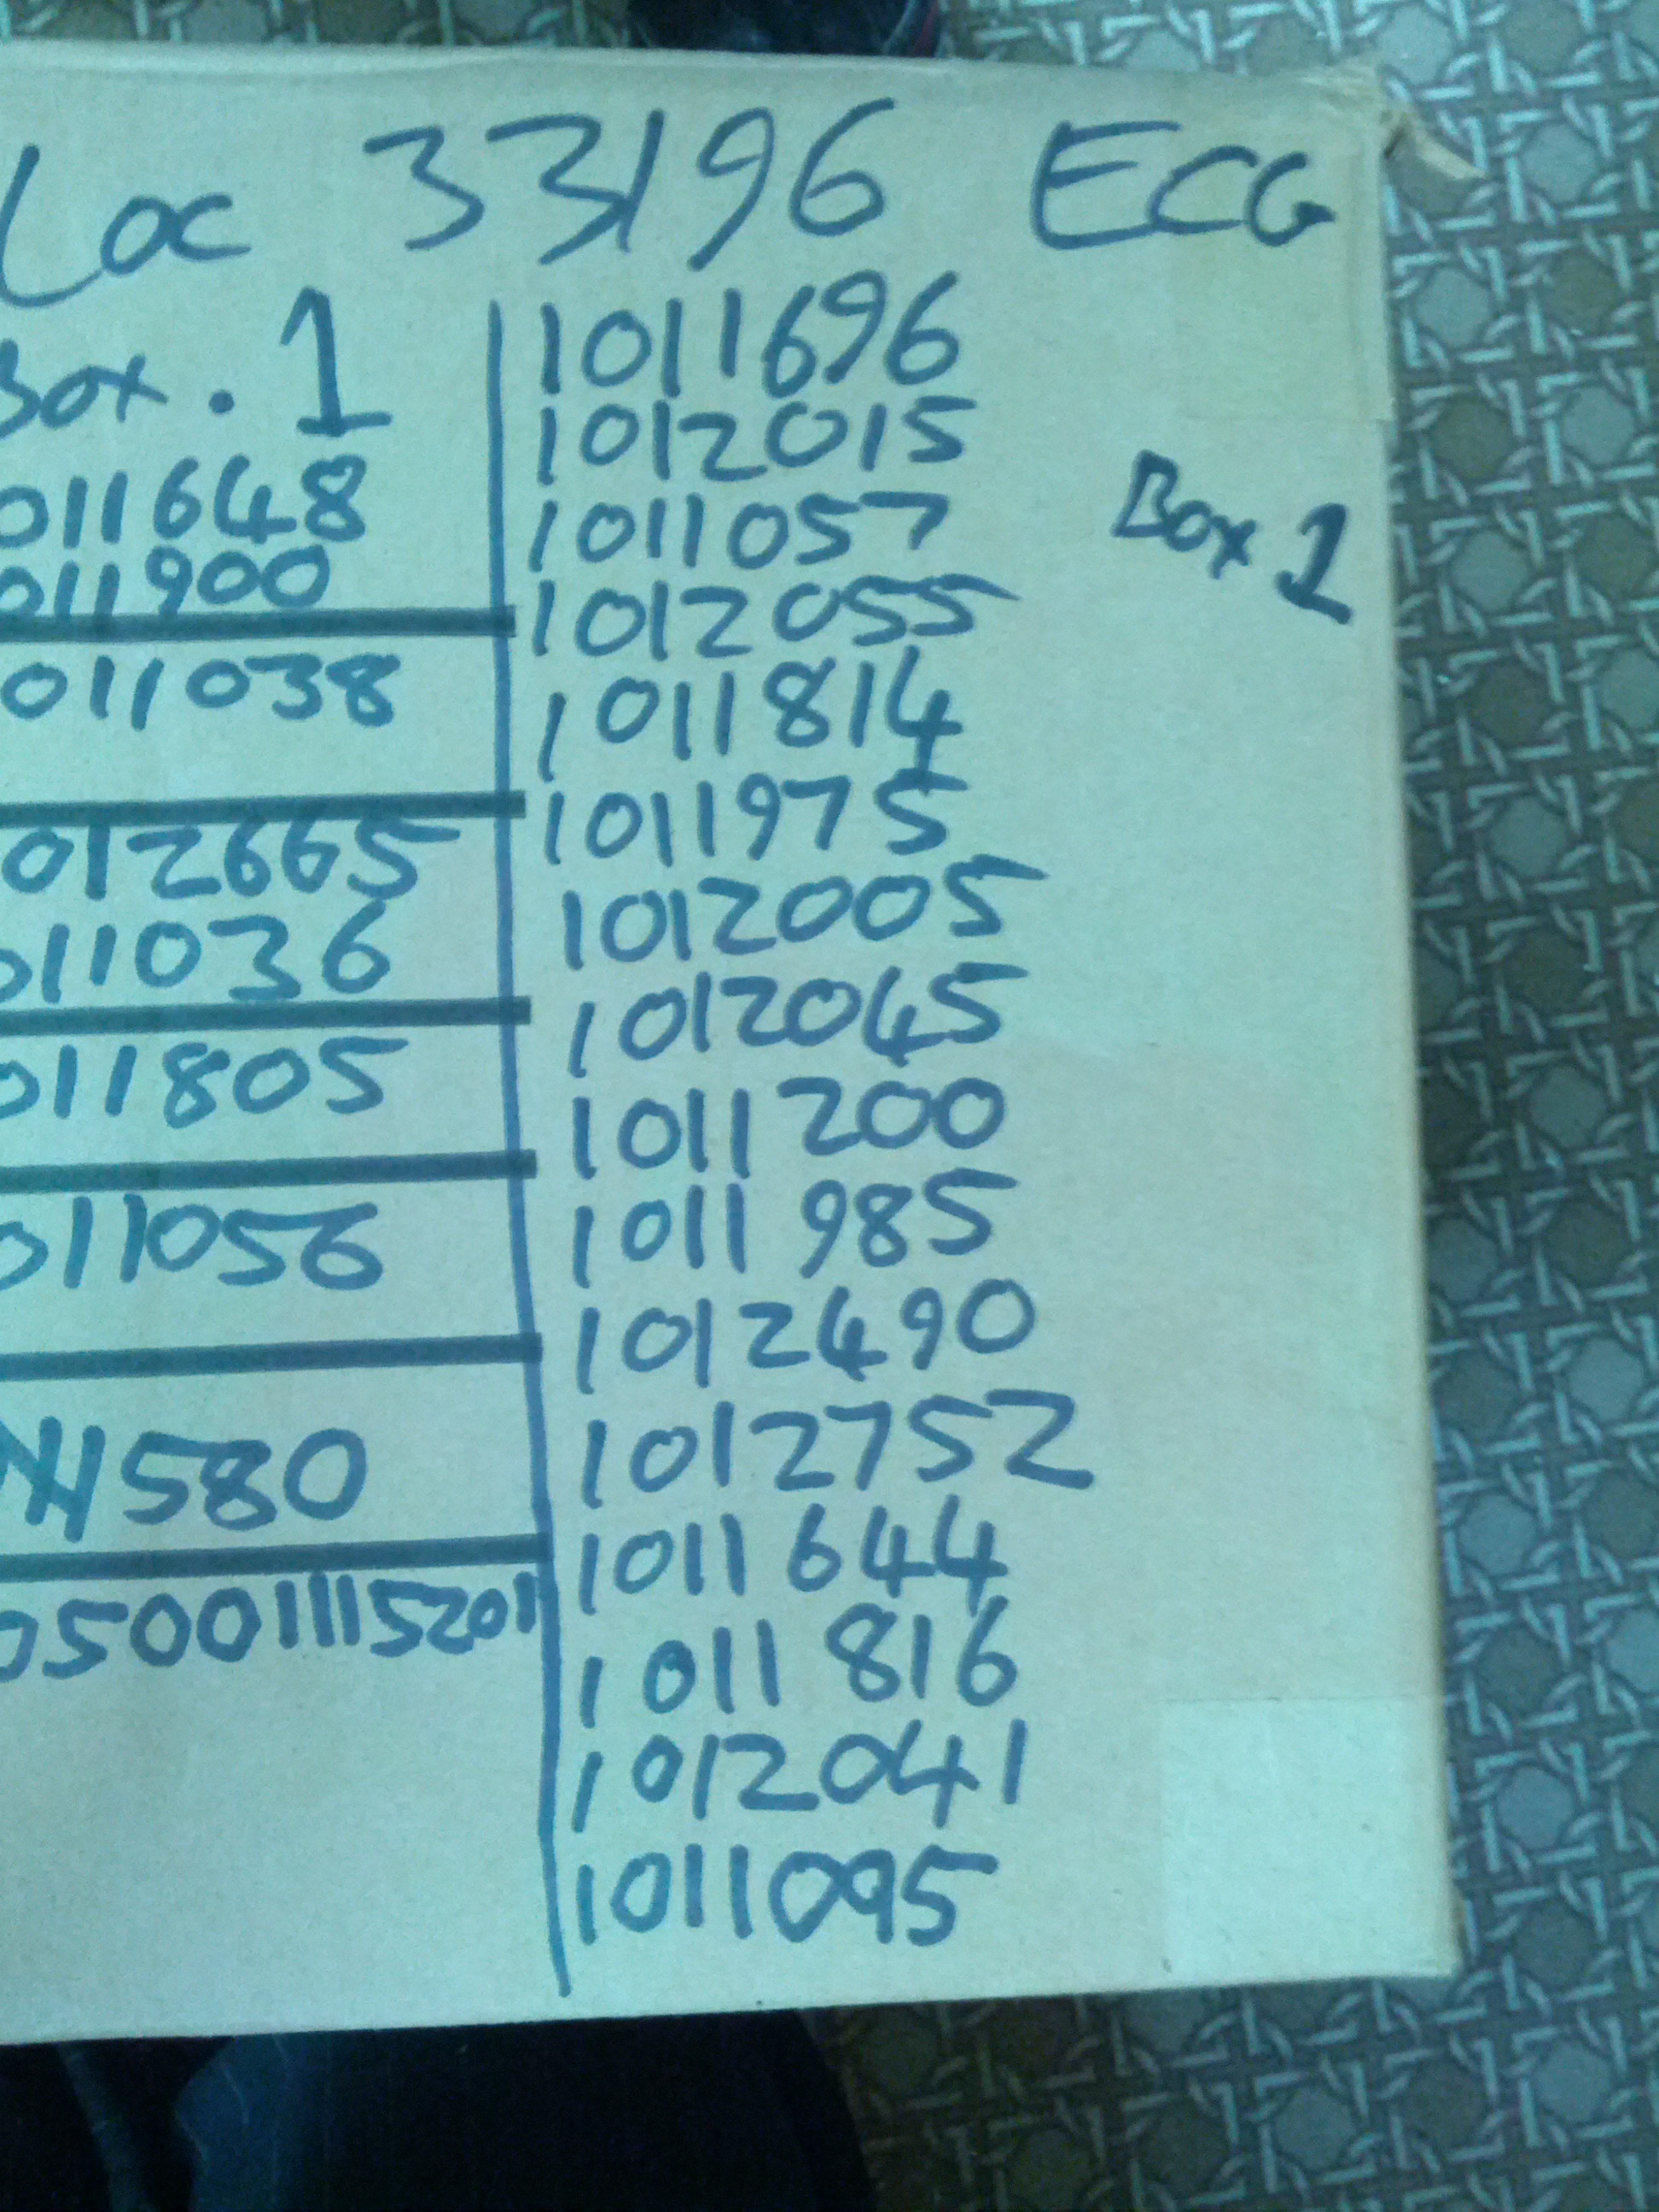 Loc 33196 ECG
Box . 1
011648
011900
011038
012665
011036
011805
011056
580
05001115201
1011696
1012015
1011057
1012055
1011814
1011975
1012005
1012045
1011200
1011985
1012490
1012752
1011644
1011816
1012041
1011095
Box 1